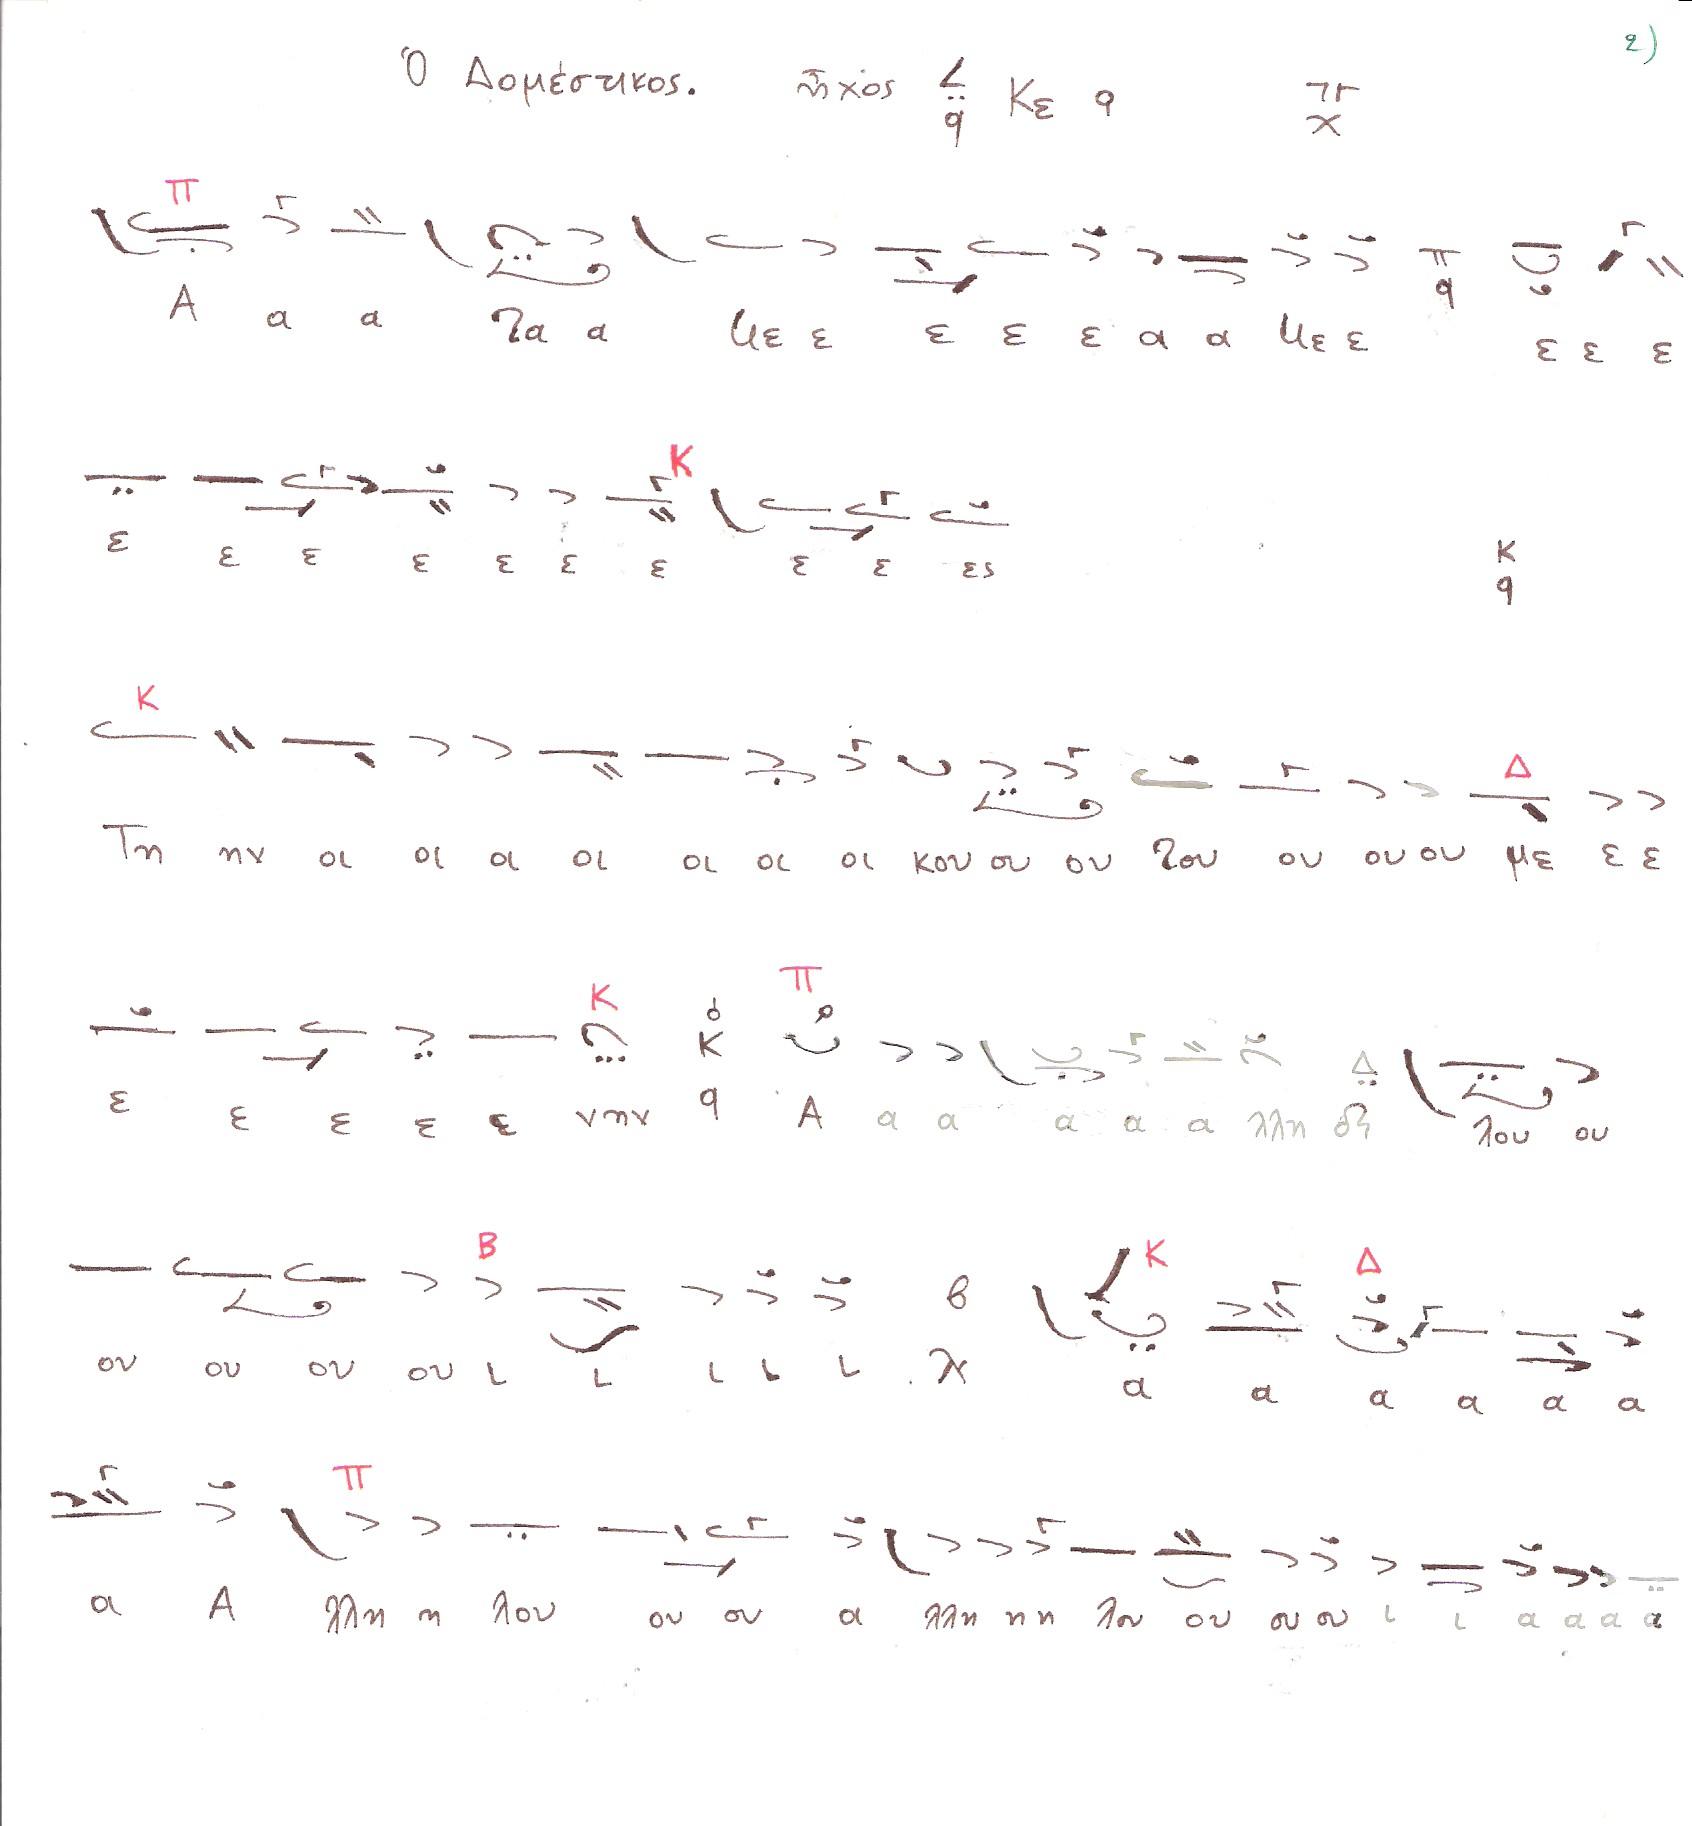 2)
Ὁ Δομέστικος. ἦχος Κε
Π
Α α α τα α με ε ε ε ε α α με ε ε ε ε
Κ
ε ε ε ε ε ε ε ε ε ες
Κ
Κ Δ
Τη ην οι οι α οι οι οι οι κου ου ου του ου ου ου με ε ε
Κ Κ Π
ε ε ε ε ε νην Α α α α α α λλη Δ λου ου
Β Κ Δ
ου ου ου ου ι ι ι ι ι α α α α α α
Π
α Α λλη η λου ου ου α λλη η η λου ου ου ου ι ι α α α α